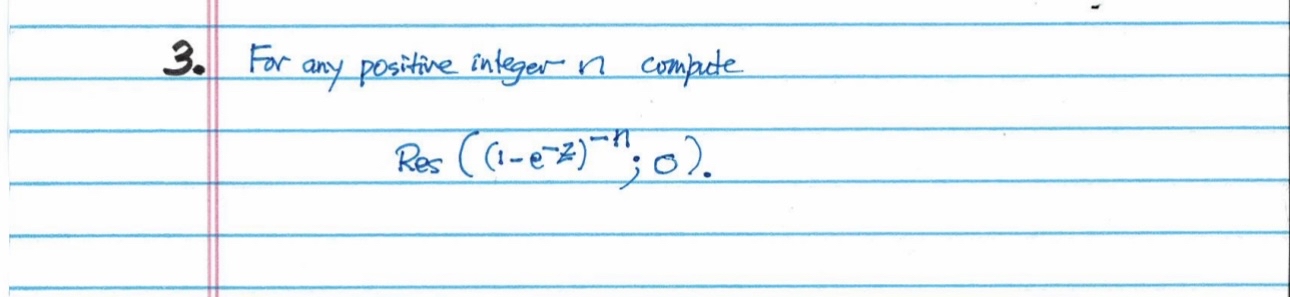 3. For any positive integer n compute
Res ((1-e^{-z})^{-n}; 0).